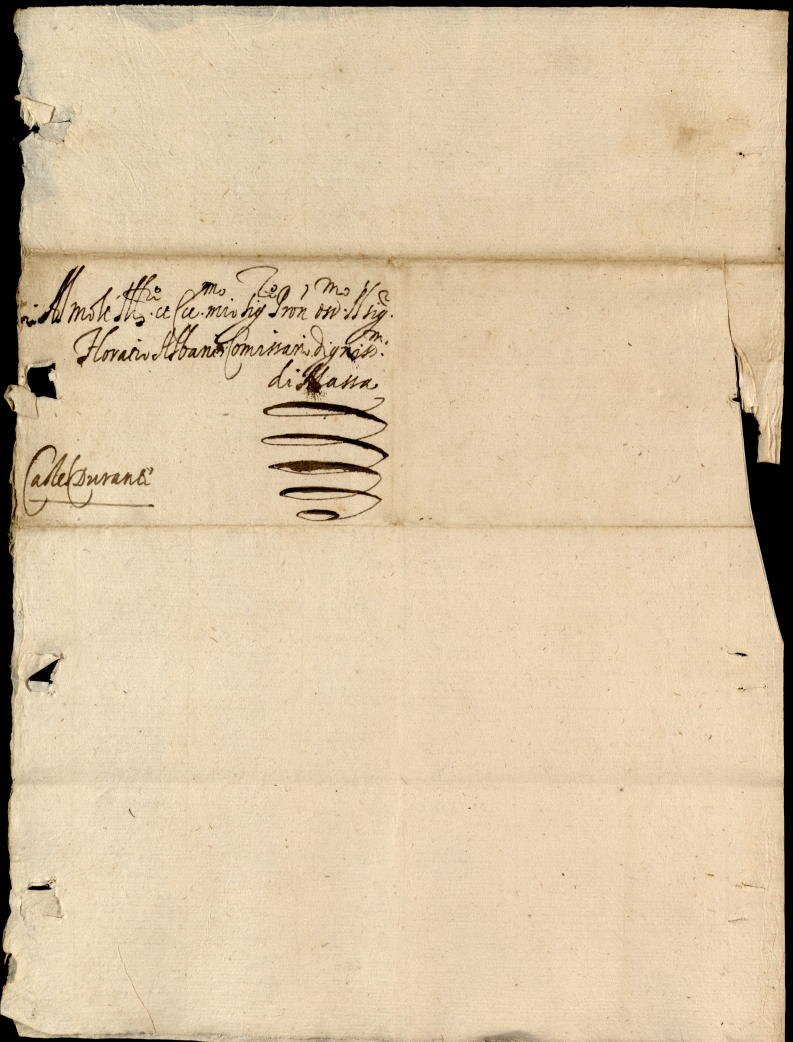 Al molto Ill.re et ecc.mo mio Sig.re Pron oss.mo Il Sig.r
Horatio Albani Comissario digniss.mo
di Massa
Castel Durante